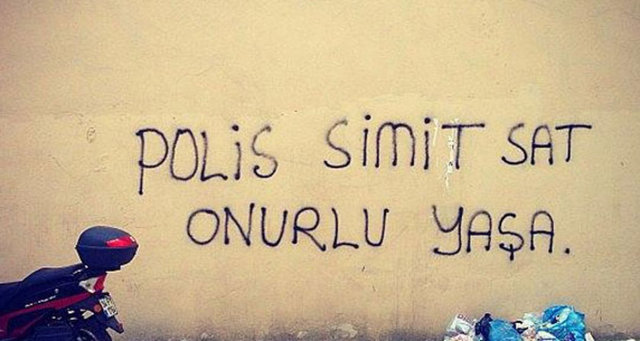 POLİS SİMİT SAT
ONURLU YAŞA.